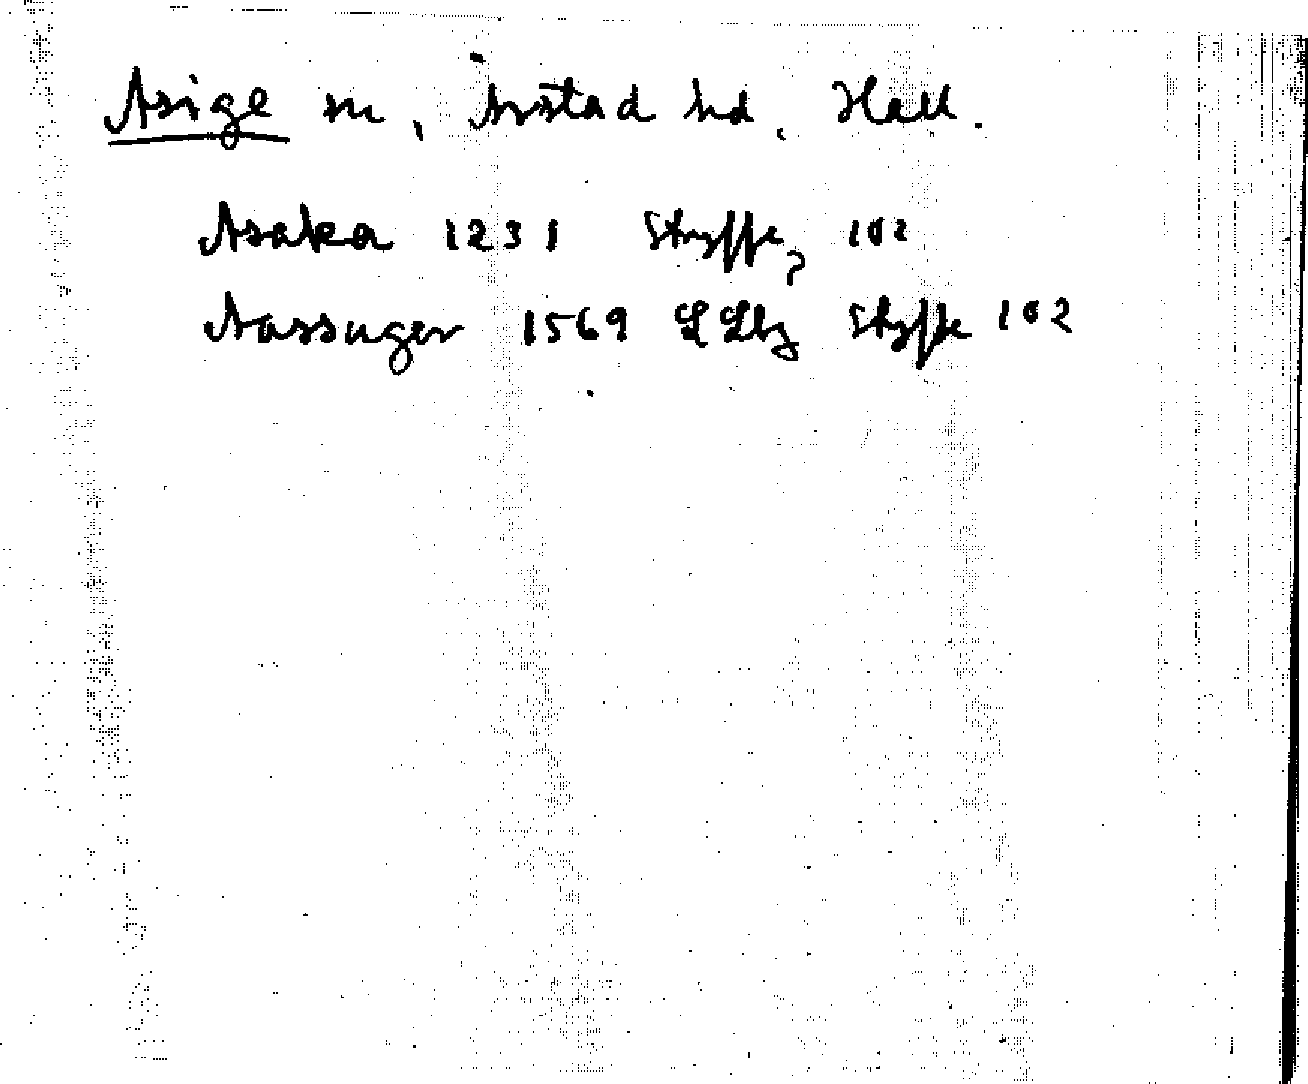 Asige sn, Årstad hd, Hall.
Asaka 1231 Styffe, 102
Aassuger 1569 LLbg Styffe 102